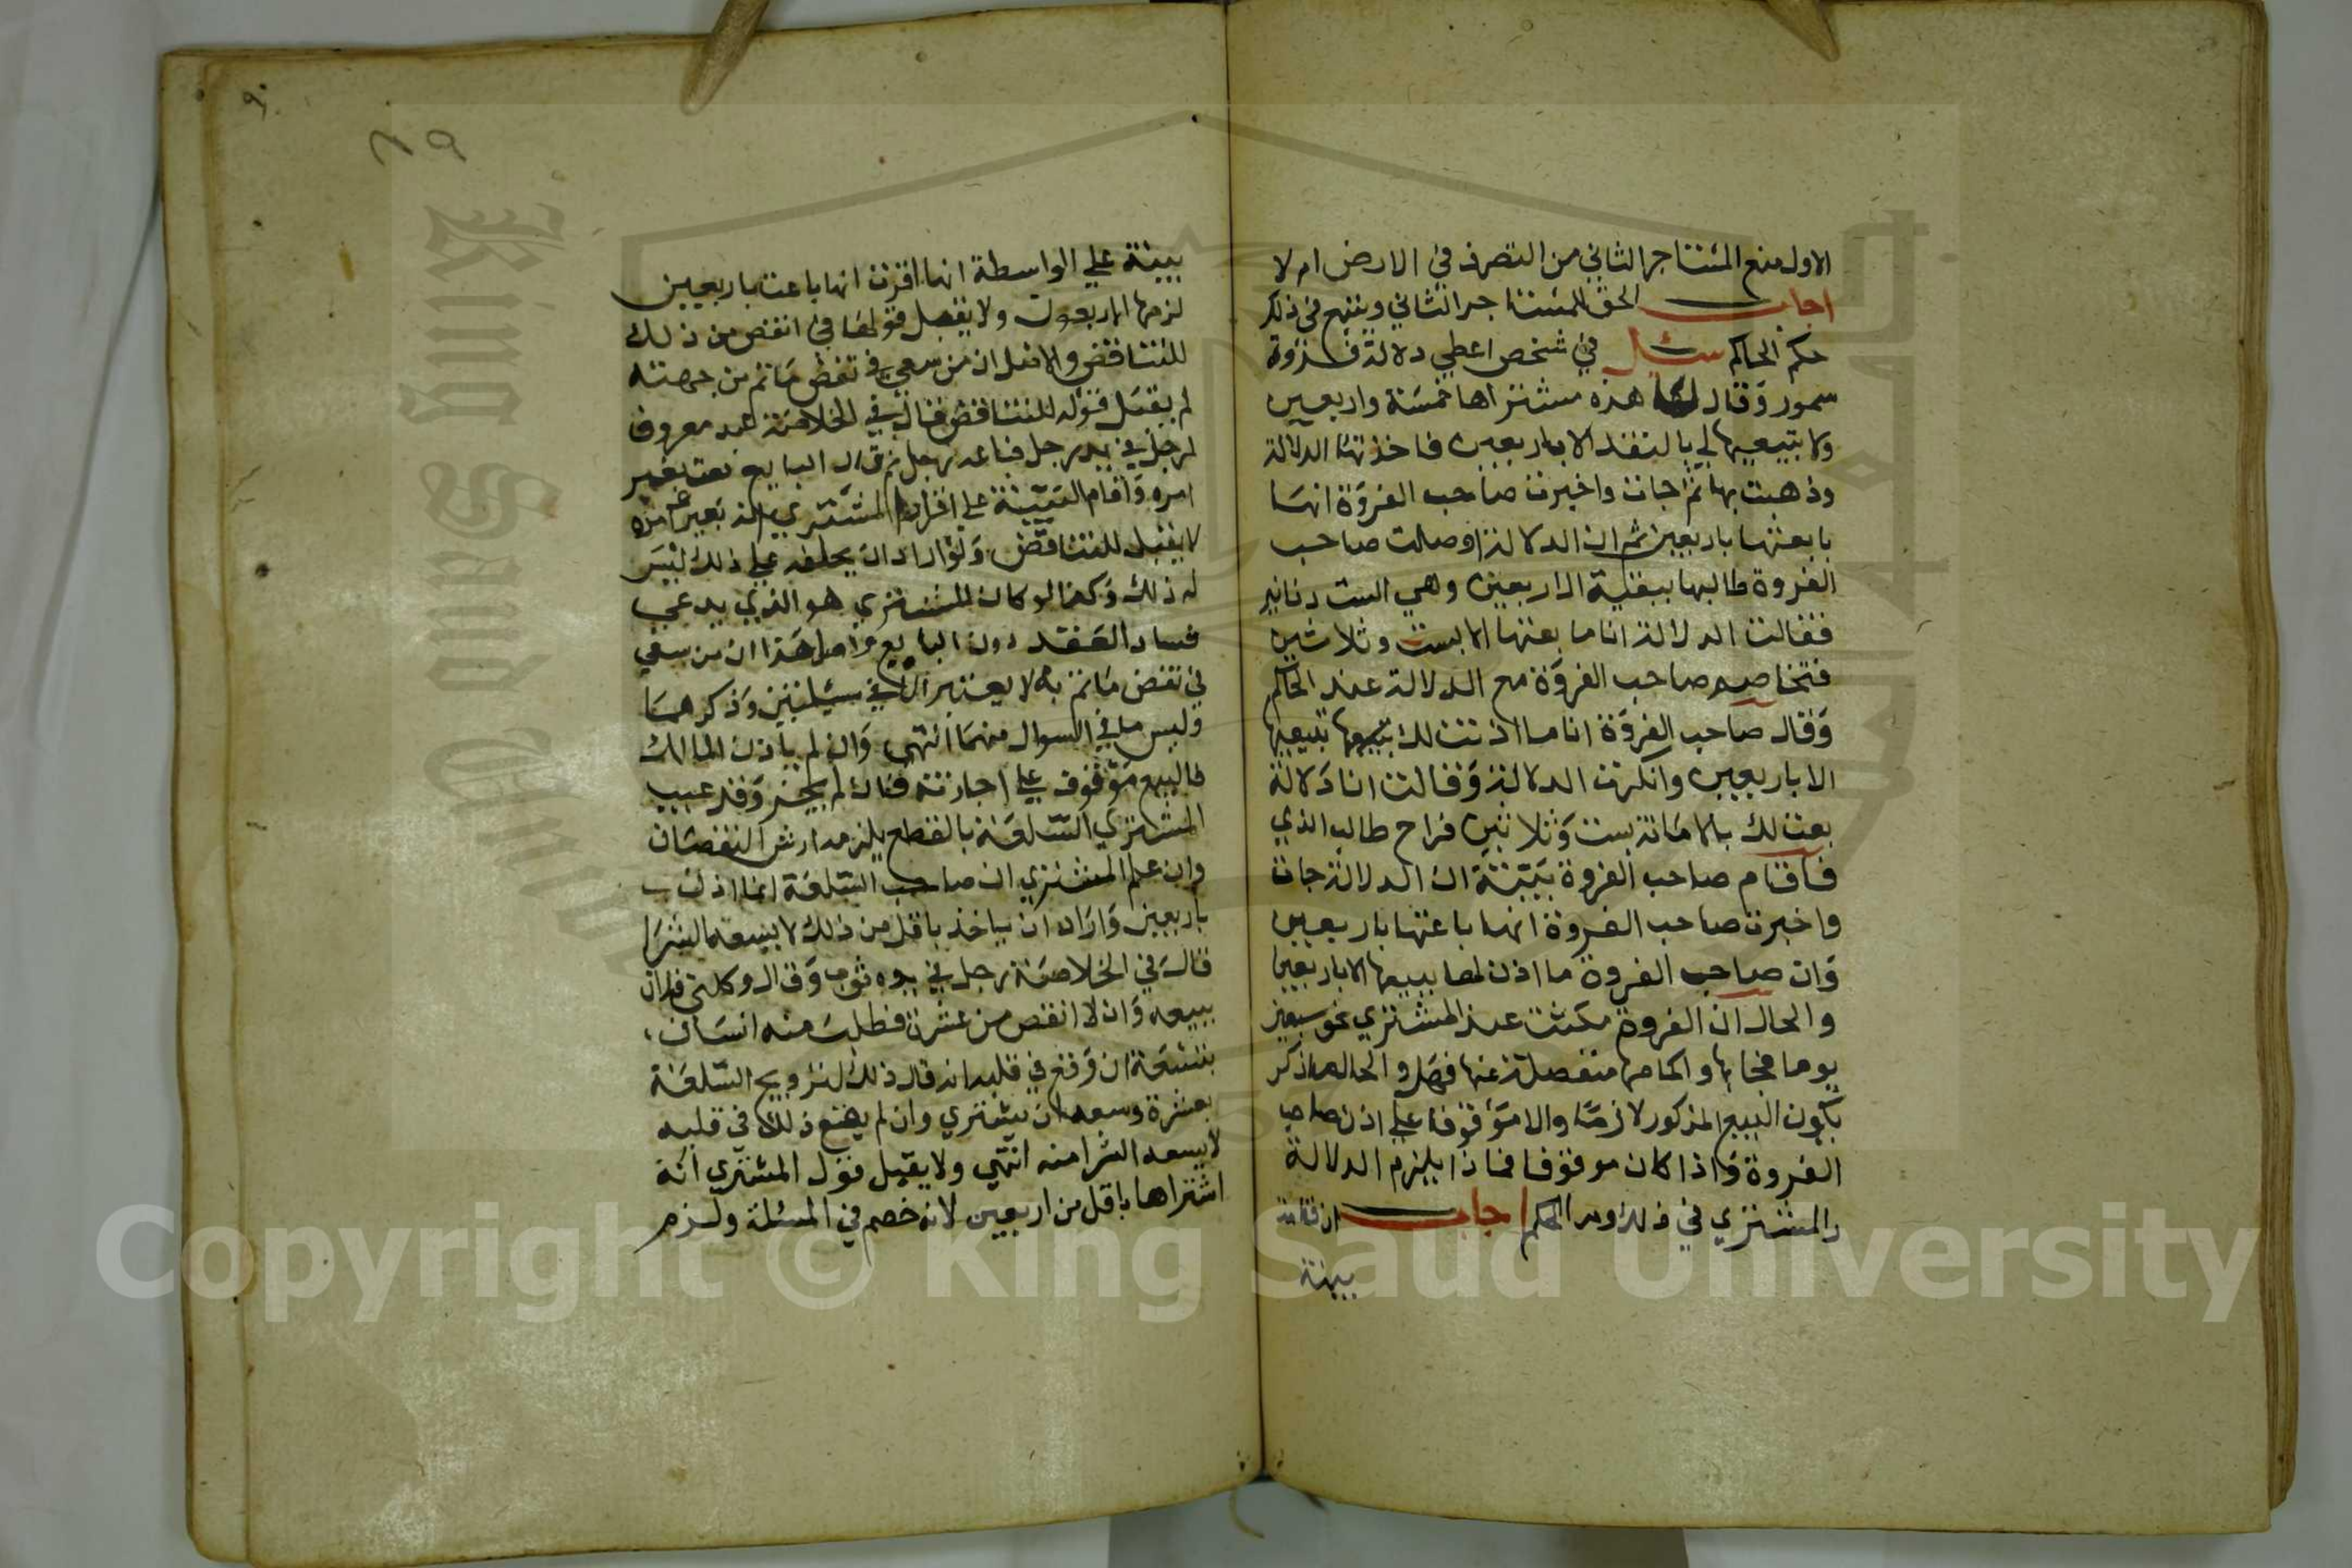 الاول منع المستاجر الثاني من التصرف في الارض ام لا
اجاب الحق للمستاجر الثاني وينهي في ذلك
حكم الحاكم سئل في شخص اعطي دلالة فروة
سمور وقال لها هذه مشتراها خمسة واربعين
ولا تبيعيها لي بالنقد الا باربعين فاخذتها الدلالة
وذهبت بها ثم اجات واخبرت صاحب الفروة انها
بايعتها باربعين ثم ان الدلالة اوصلت صاحب
الفروة طالبها ببقية الاربعين وهي الست دنانير
فقالت الدلالة انا ما بعتها الا بست وثلاثين
فتخاصم صاحب الفروة مع الدلالة عند الحاكم
وقال صاحب الفروة انا ما اذنت لك ببيعها تبيعيها
الا باربعين وانكرت الدلالة وقالت انا دلالة
بعت لك بالامانة بست وثلاثين فراح طالب الذي
فاقام صاحب الفروة بينة ان الدلالة جات
واخبرت صاحب الفروة انها باعتها باربعين
وان صاحب الفروة ما اذن لها ببيعها الا باربعين
والحال ان الفروة مكثت عند المشتري نحو سبعين
يوما فجابها واكمامها منفصلة عنها فهل والحال ما ذكر
يكون البيع المذكور لازما والا موقوفا علي اذن صاحب
الفروة واذا كان موقوفا فماذا يلزم الدلالة
والمشتري في ذلك وما الحكم اجاب ان قامت
بينة
٩٠
٨٩
بينة علي الواسطة انها اقرت انها باعت باربعين
لزمها الاربعون ولا يقبل قولها في انقص من ذلك
للتناقض والاصل ان من سعي في نقض ما تم من جهته
لم يقبل قوله للتناقض قال في الخلاصة عبد معروف
لرجل في يد رجل فباعه رجل ثم قال البايع بعت بغير
امره واقام البينة علي اقرار المشتري انه بغير امره
لا يقبل للتناقض ولو اراد ان يحلفه علي ذلك ليس
له ذلك وكذا لو كان المشتري هو الذي يدعي
فساد العقد دون البايع واصل هذا ان من سعي
في نقض ما تم به لا يعتبر الا في مسئلتين وذكرهما
وليس ما في السوال منهما انتهي وان لم ياذن المالك
فالبيع موقوف علي اجازته فان لم يجز وقد عيب
المشتري السلعة بالقطع يلزمه ارش النقصان
وان علم المشتري ان صاحب السلعة انما اذن ب
باربعين واراد ان ياخذ باقل من ذلك لا يسعه الشرا
قال في الخلاصة رجل في يده ثوب وقال وكلني فلان
ببيعه وان لا انقص من عشرة فطلب منه انسان
بتسعة ان وقع في قلبه انه قال ذلك لترويج السلعة
بعشرة وسعه ان يشتري وان لم يقع ذلك في قلبه
لا يسعه الشرا منه انتهي ولا يقبل قول المشتري انه
اشتراها باقل من اربعين لانه خصم في المسئلة ولزم
King Saud University
Copyright © King Saud University